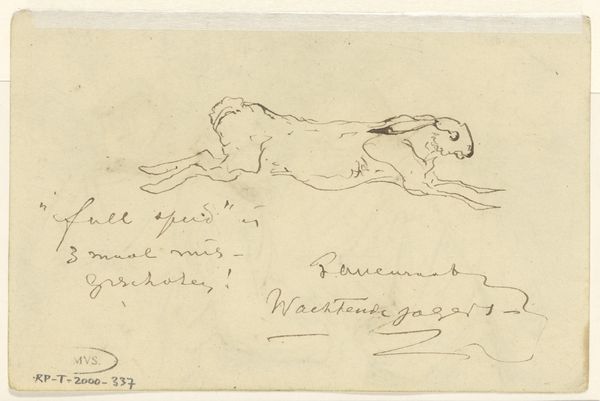 "full speed" is
3 maal mis-
geschoten!
Wachtende jagers
MVS.
RP-T-2000-337